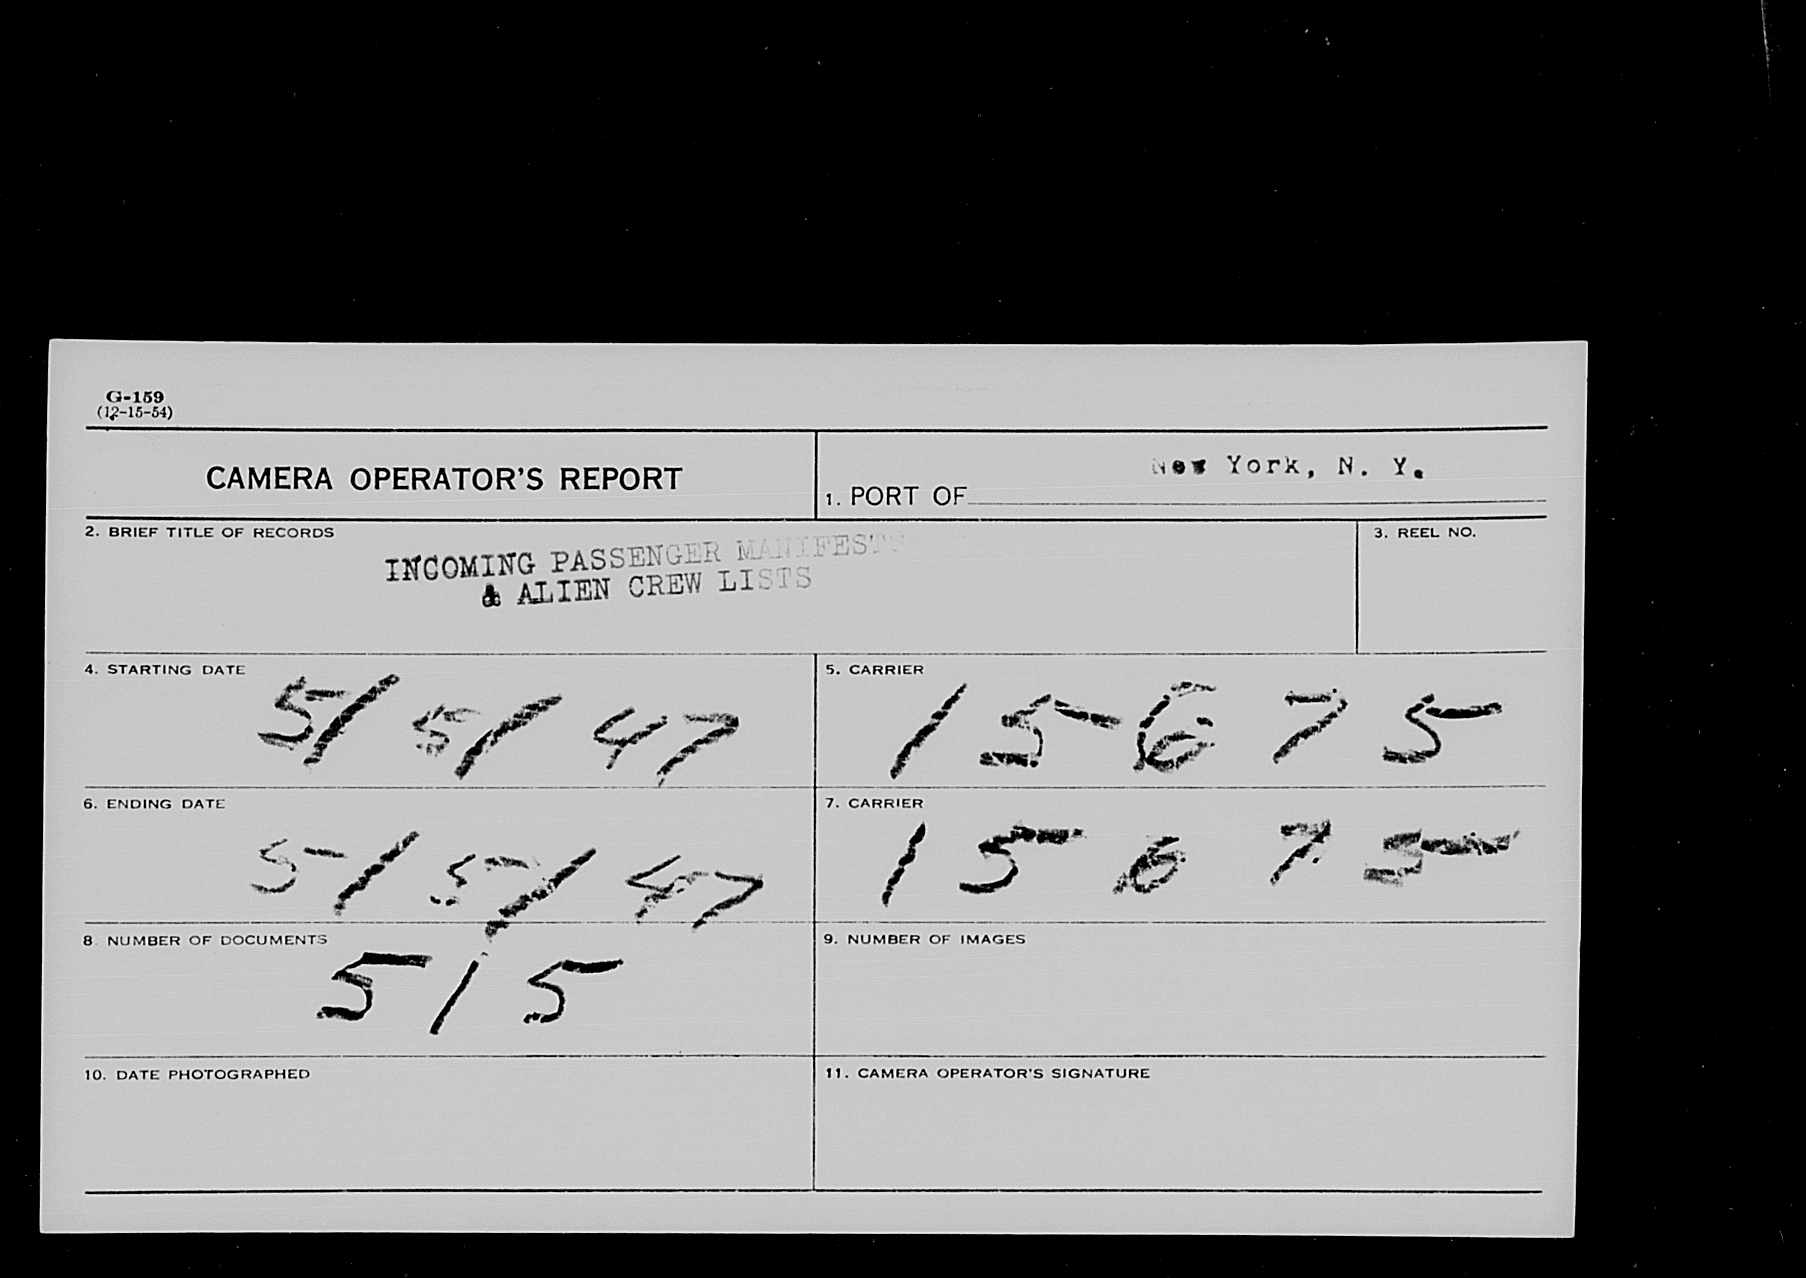 G-159
(12-15-54)
CAMERA OPERATOR'S REPORT
1. PORT OF New York, N. Y.
2. BRIEF TITLE OF RECORDS
INCOMING PASSENGER MANIFESTS
& ALIEN CREW LISTS
3. REEL NO.
4. STARTING DATE
5/5/47
5. CARRIER
15675
6. ENDING DATE
5/5/47
7. CARRIER
15675
8. NUMBER OF DOCUMENTS
515
9. NUMBER OF IMAGES
10. DATE PHOTOGRAPHED
11. CAMERA OPERATOR'S SIGNATURE